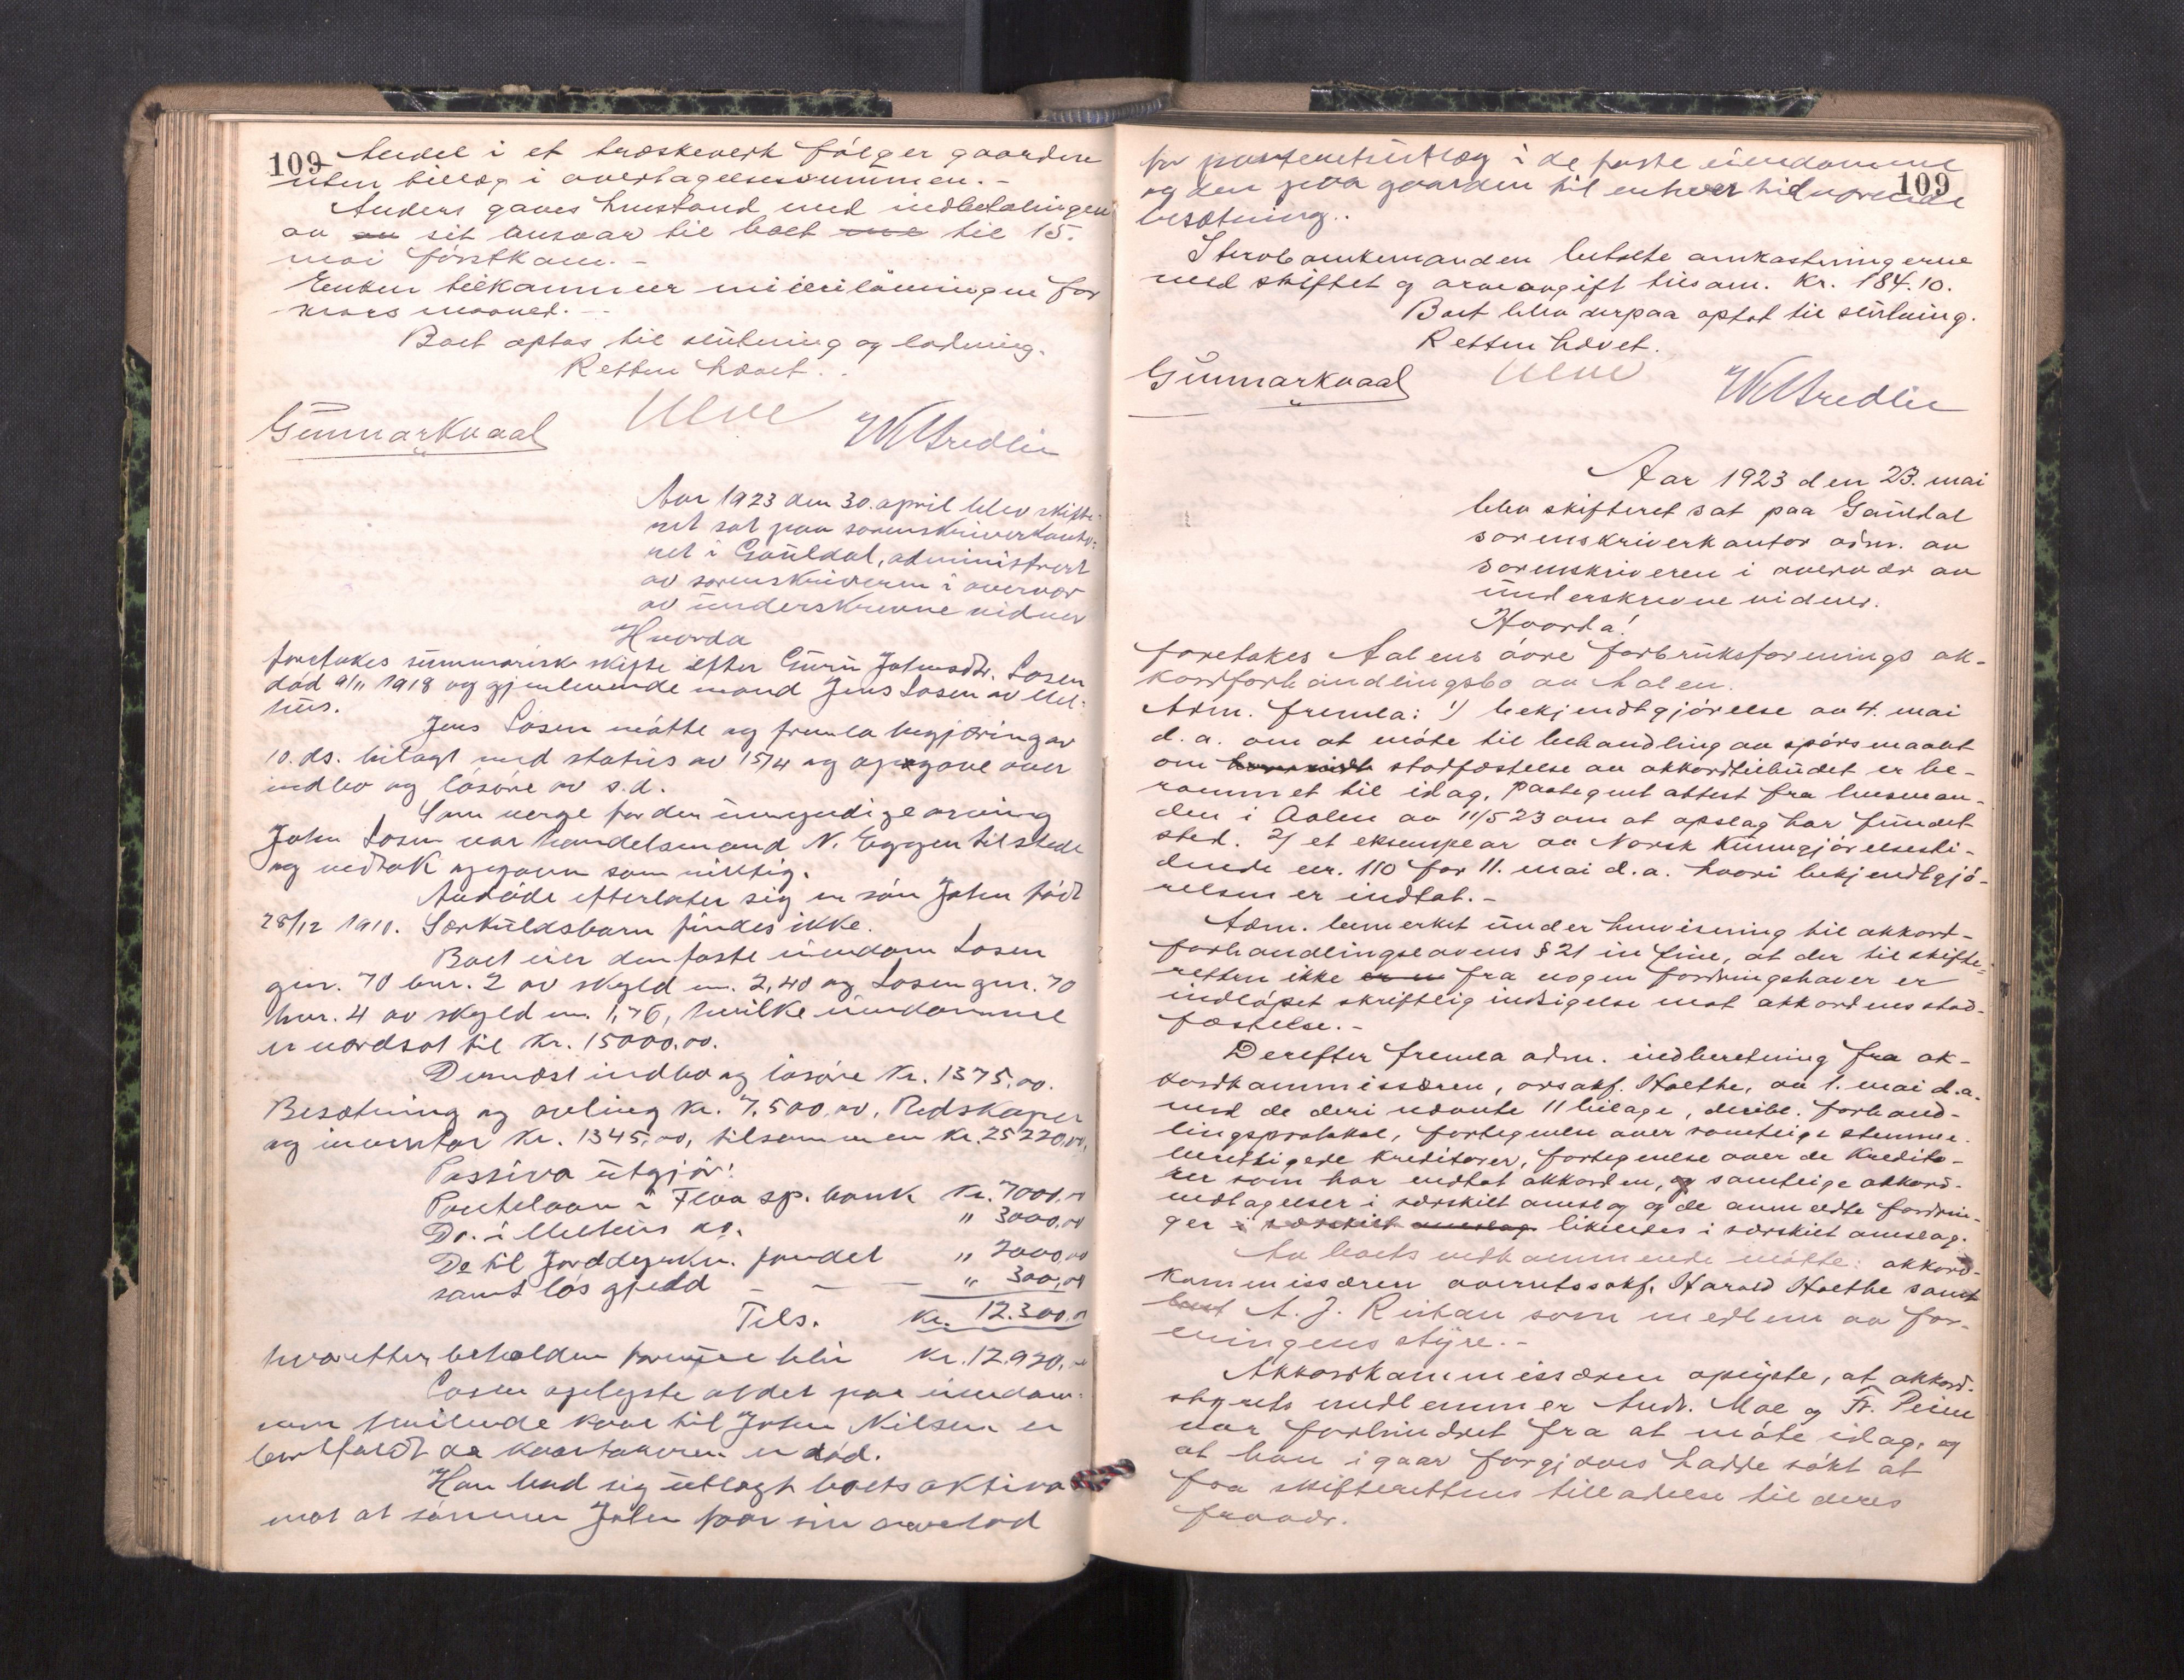 109
Andel i et træskeverk følger gaarden
uten tillæg i overtagelsessummen. -
Anders gaves henstand med indbetalingen
av av sit ansvar til boet til 15.
mai førstkom. -
Enken tilkommer meierilønningen for
mars maaned. -
Boet optas til slutning og lodning.
Retten hævet.
Gunnar Kvaal
Aar 1923 den 30. april blev skifte-
ret sat paa sorenskriverkonto-
ret i Gauldal, administrert
av sorenskriveren i overvær
av underskrevne vidner
Hvorda
foretokes summarisk skifte efter Guru Johnsdtr. Losen
død 9/11 1918 og gjenlevende mand Jens Losen av Mel-
hus.
Jens Losen møtte og fremla begjæring av
10. ds. bilagt med status av 15/4 og opgave over
indbo og løsøre av s.d.
Som verge for den umyndige arving
John Losen var handelsmand N. Eggen tilstede
og vedtok opgaven som riktig.
Avdøde efterlater sig en søn John født
28/12 1910. Særkuldsbarn findes ikke.
Boet eier den faste eiendom Losen
gnr. 70 bnr. 2 av skyld m. 2,40 og Losen gnr. 70
bnr. 4 av skyld m. 1,76, hvilke eiendomme
er værdsat til kr. 15000,00.
Dernæst indbo og løsøre kr. 1375,00.
Besætning og avling kr. 7.500,00, Redskaper
og inventar kr. 1345,00, tilsammen kr. 25220,00,
Passiva utgjør:
Pantelaan i Flaa sp. bank kr. 7000,00
Do. i Melhus do. " 3000,00
Do til Jorddyrkn. fondet " 2000,00
samt løs gjæld - - " 300,00
Tils. kr. 12.300,00
hvorefter beholden formue blir kr. 12.920,00
Losen oplyste at det paa eiendom-
men hvilende kaar til John Nilsen er
bortfaldt da kaartakeren er død.
Han bad sig utlagt boets aktiva
mot at sønnen John faar sin arvelod
109
for panteretsutlæg i de faste eiendomme
og den paa gaarden til enhver tid værende
besætning..
Sterbo enkemanden betalte omkostningerne
med skiftet og arveavgift tilsam. kr. 184.10.
Boet blev derpaa optat til slutning.
Retten hævet.
Gunnar Kvaal
Aar 1923 den 23. mai
blev skifteret sat paa Gauldal
sorenskriverkontor adm. av
sorenskriveren i overvær av
underskrevne vidner.
Hvorda!
foretokes Aalens øvre forbruksforenings ak-
kordforhandlingsbo av Aalen.
Adm. fremla: 1) bekjendtgjørelse av 4. mai
d.a. om at møte til behandling av spørsmaalet
om stadfæstelse av akkordtilbudet er be-
rammet til idag, paategnet attest fra lensman-
den i Aalen av 11/5 23 om at opslag har fundet
sted. 2) et eksemplar av Norsk Kunngjørelsesti-
dende nr. 110 for 11. mai d.a. hvori bekjendtgjø-
relsen er indtat. -
Adm. bemerket under henvisning til akkord-
forhandlingslovens § 21 in fine, at der til skifte-
retten ikke er fra nogen fordringshaver er
indløpet skriftlig indsigelse mot akkordens stad-
fæstelse. -
Derefter fremla adm. indberetning fra ak-
kordkommissæren, orsakf. Holthe, av 1. mai d.a.
med de deri nævnte 11 bilage, deribl. forhand-
lingsprotokol, fortegnelse over samtlige stemme-
berettigede kreditorer, fortegnelse over de kredito-
rer som har vedtat akkorden, og samtlige akkord-
vedtagelser i særskilt omslag og de anmeldte fordrin-
ger i særskilt omslag likeledes i særskilt omslag.
Av boets vedkommende møtte: akkord-
kommissæren overretssakf. Harald Holthe samt
A. J. Ruhau som medlem av for-
eningens styre. -
Akkordkommissæren oplyste, at akkord-
styrets medlemmer Andr. Moe og Fr.
var forhindret fra at møte idag, og
at han igaar forgjæves hadde søkt at
faa skifterettens tilladelse til deres
fravær.